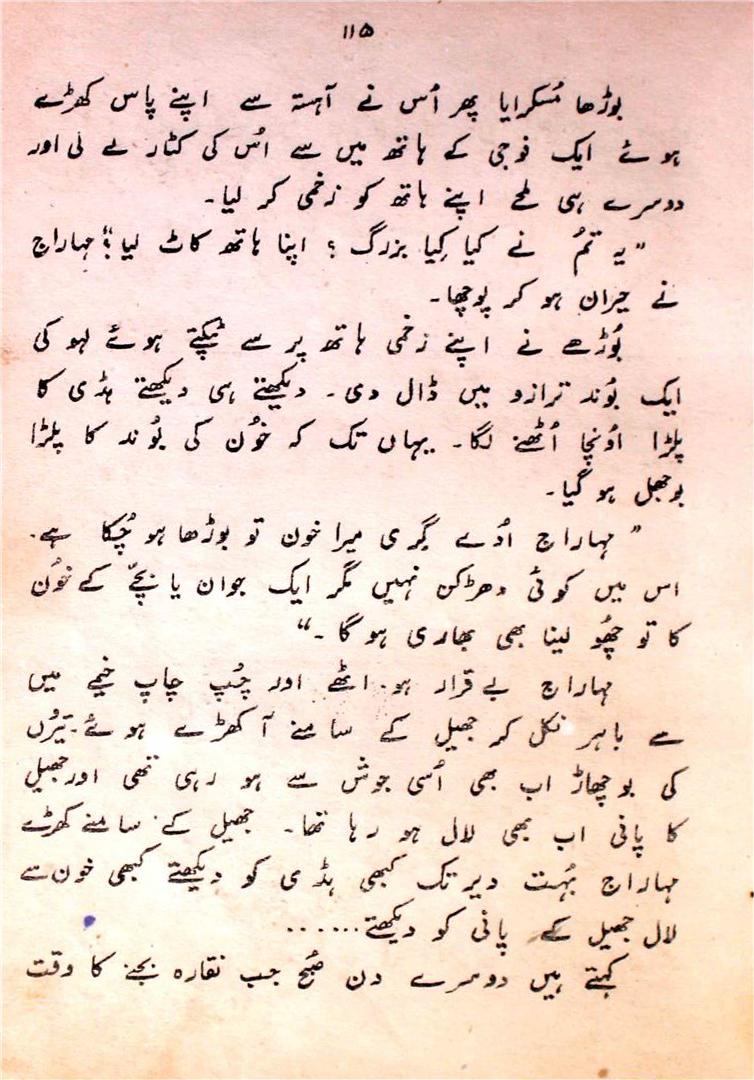 ۱۱۵
بوڑھا مُسکرایا پھر اُس نے آہستہ سے اپنے پاس کھڑے
ہوئے ایک فوجی کے ہاتھ میں سے اُس کی کٹار لے لی اور
دوسرے ہی لمحے اپنے ہاتھ کو زخمی کر لیا۔
”یہ تمُ نے کیا کِیا بزرگ ؟ اپنا ہاتھ کاٹ لیا؟“ مہاراج
نے حیران ہو کر پوچھا۔
بُوڑھے نے اپنے زخمی ہاتھ پر سے ٹپکتے ہوئے لہو کی
ایک بُوند ترازو میں ڈال دی۔ دیکھتے ہی دیکھتے ہڈی کا
پلڑا اُونچا اُٹھنے لگا۔ یہاں تک کہ خوُن کی بوُند کا پلڑا
بوجھل ہو گیا۔
”مہاراج اُدے گِری میرا خون تو بوڑھا ہو چُکا ہے۔
اس میں کوئی دھڑکن نہیں مگر ایک جوان یا بچّے کے خوُن
کا تو چھُو لینا بھی بھاری ہو گا۔“
مہاراج بے قرار ہو اٹھے اور چُپ چاپ خیمے میں
سے باہر نکل کر جھیل کے سامنے آ کھڑے ہوئے۔ تیروُں
کی بوچھاڑ اب بھی اُسی جوش سے ہو رہی تھی اور جھیل
کا پانی اب بھی لال ہو رہا تھا۔ جھیل کے سامنے کھڑے
مہاراج بہُت دیر تک کبھی ہڈی کو دیکھتے کبھی خون سے
لال جھیل کے پانی کو دیکھتے......
کہتے ہیں دوسرے دن صُبح جب نقارہ بجنے کا وقت